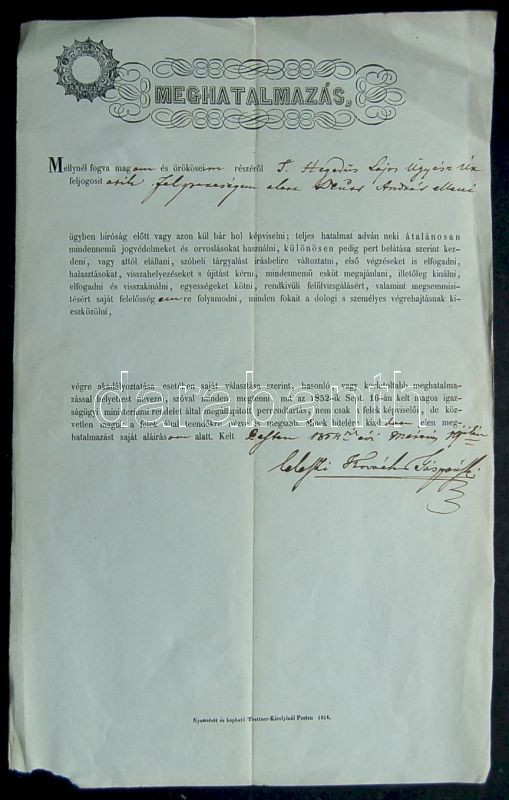 MEGHATALMAZÁS,
Mellynél fogva magam és örököseim részéről T. Hegedűs Lajos Ügyész Úr
feljogosít alperesi
ügyben biróság előtt vagy azon kül bár hol képviselni; teljes hatalmat adván neki átalánosan
mindennemű jogvédelmeket és orvoslásokat használni, különösen pedig pert belátása szerint kez-
deni, vagy attól elállani, szóbeli tárgyalást irásbelire változtatni, első végzéseket is elfogadni,
halasztásokat, visszahelyezéseket s újitást kérni, mindennemű esküt megajánlani, illetőleg kinálni,
elfogadni és visszakinálni, egyességeket kötni, rendkivüli felülvizsgálásért, valamint megsemmisi-
tésért saját felelősségemre folyamodni, minden fokait a dologi s személyes végrehajtásnak ki-
eszközölni,
végre akadályoztatása esetében saját választása szerint, hasonló vagy korlátoltabb meghatalma-
zással helyettest nevezni, szóval minden megtenni, mit az 1852-ik Sept. 16-án kelt magos igaz-
ságügyi ministeriumi rendelet által megállapitott perrendtartás, nemcsak a felek képviselői, de köz-
vetlen magok a felek által teendőkre nézve is megszab. Minek hiteléül kiadtam jelen meg-
hatalmazást saját aláírásom alatt. Kelt Pesten 1854 évi Március 19én
Kovách Gáspár
Nyomatott és kapható Trattner-Károlyinál Pesten 1854.
darabanth